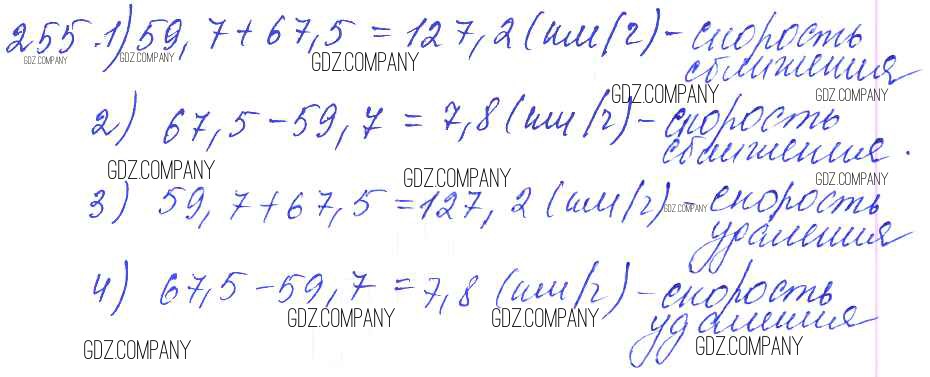 255.1) 59,7+67,5=127,2(км/ч)-скорость
GDZ.COMPANY GDZ.COMPANY GDZ.COMPANY сближения
GDZ.COMPANY GDZ.COMPANY
2) 67,5-59,7=7,8(км/ч)-скорость
сближения.
GDZ.COMPANY GDZ.COMPANY GDZ.COMPANY
3) 59,7+67,5=127,2(км/ч)-скорость
GDZ.COMPANY
удаления
4) 67,5-59,7=7,8(км/ч)-скорость
GDZ.COMPANY GDZ.COMPANY удаления
GDZ.COMPANY GDZ.COMPANY